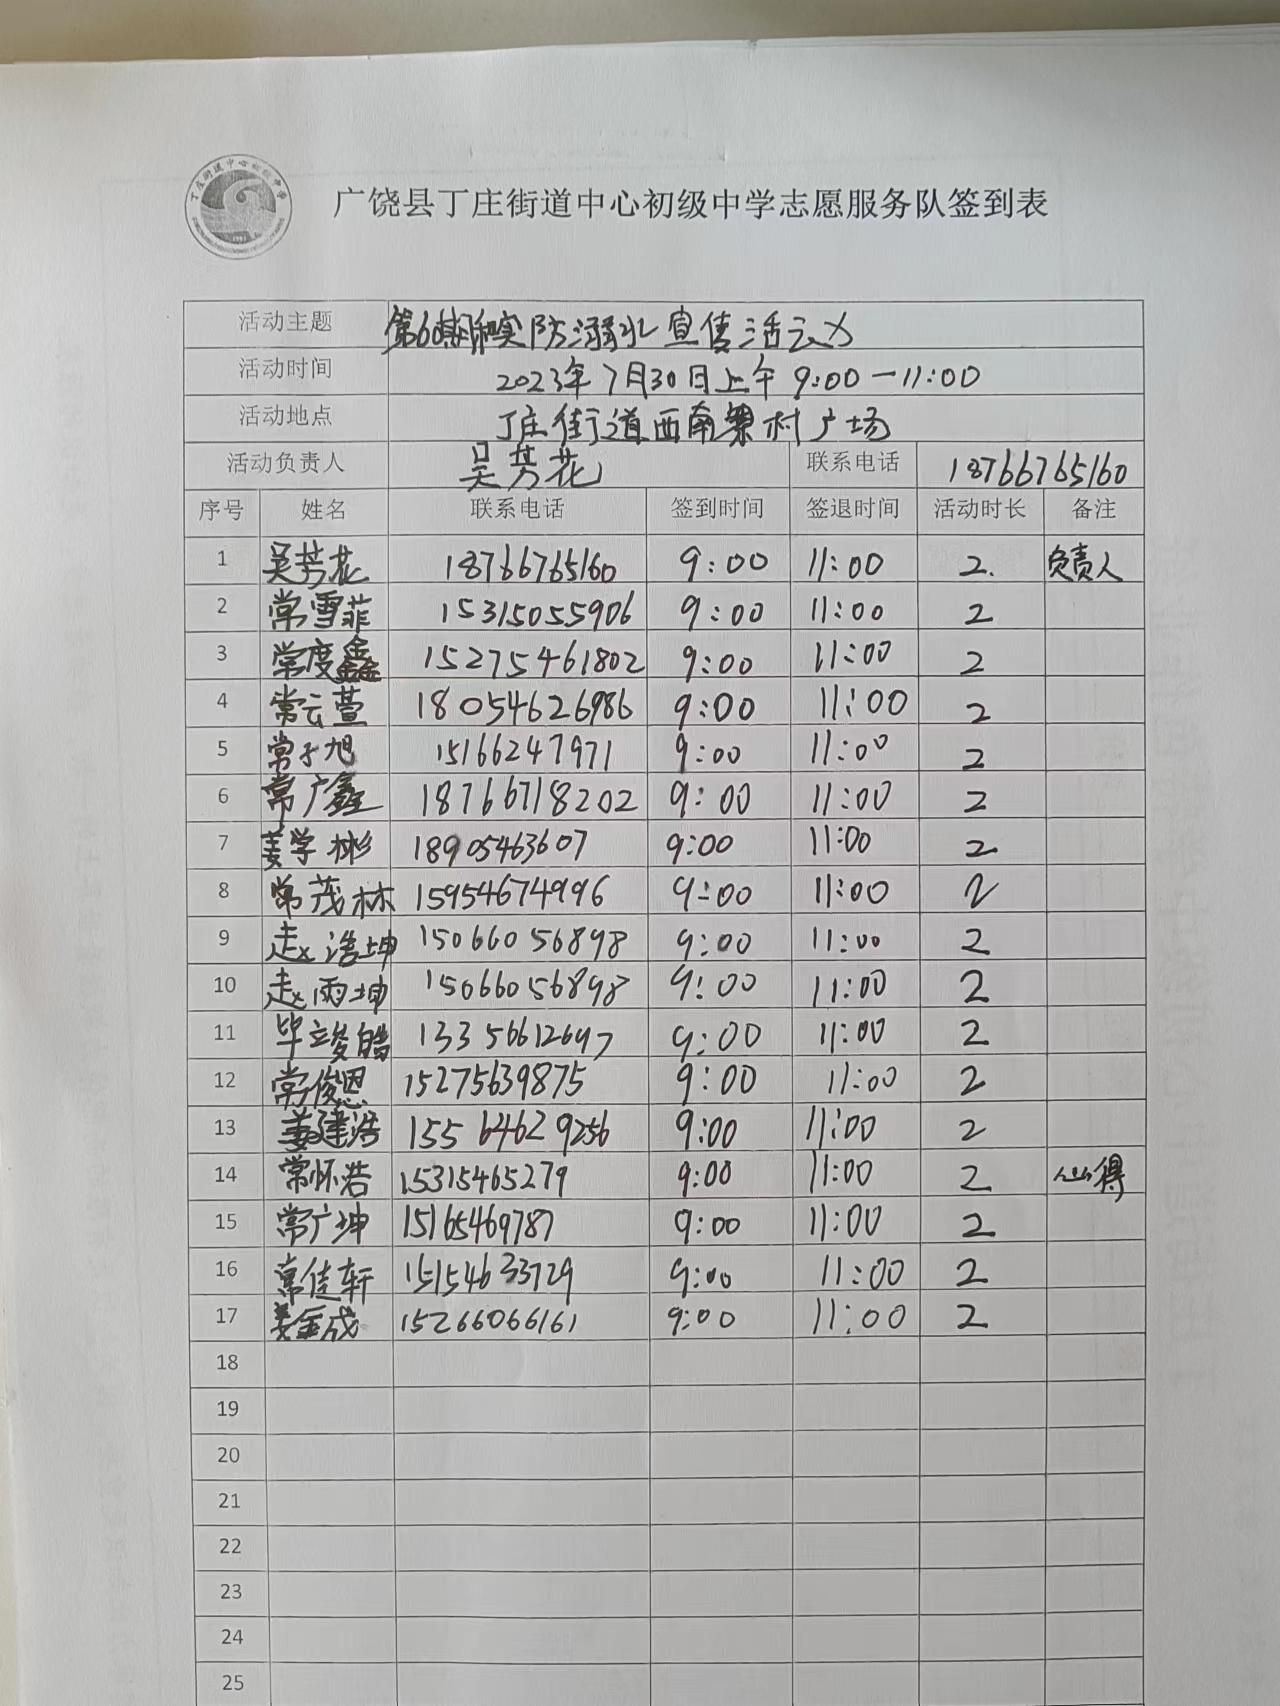 丁庄街道中心初级中学
广饶县丁庄街道中心初级中学志愿服务队签到表
活动主题 第60期 防溺水宣传活动
活动时间 2023年7月30日上午9:00—11:00
活动地点 丁庄街道西南 村广场
活动负责人 吴芳花 联系电话 18766765160
序号 姓名 联系电话 签到时间 签退时间 活动时长 备注
1 吴芳花 18766765160 9:00 11:00 2. 负责人
2 常雪菲 15315055906 9:00 11:00 2
3 常度鑫 15275461802 9:00 11:00 2
4 常云萱 18054626986 9:00 11:00 2
5 常子旭 15166247971 9:00 11:00 2
6 常广鑫 18766718202 9:00 11:00 2
7 姜学彬 18905463607 9:00 11:00 2
8 常茂林 15954674996 9:00 11:00 2
9 赵浩坤 15066056898 9:00 11:00 2
10 赵雨坤 15066056898 9:00 11:00 2
11 毕竣皓 13356612697 9:00 11:00 2
12 常俊恩 15275639875 9:00 11:00 2
13 姜建浩 15564629256 9:00 11:00 2
14 常怀浩 15315465279 9:00 11:00 2 心得
15 常广坤 15165469787 9:00 11:00 2
16 常佳轩 15154633729 9:00 11:00 2
17 姜金成 15266066161 9:00 11:00 2
18
19
20
21
22
23
24
25